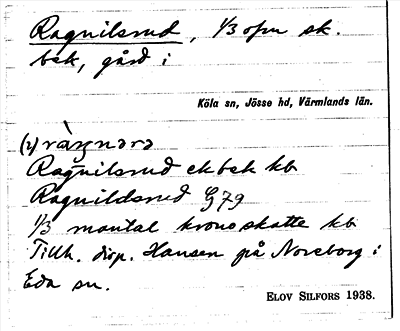 Ragnilsrud, 1/3 ofm sk.
bek, gård i
Köla sn, Jösse hd, Värmlands län.
Ragnilsrud ekbek kb
Ragnildsrud G79
1/3 mantal kronoskatte kb
Tillh. disp. Hansen på Noreborg i
Eda sn.
ELOV SILFORS 1938.